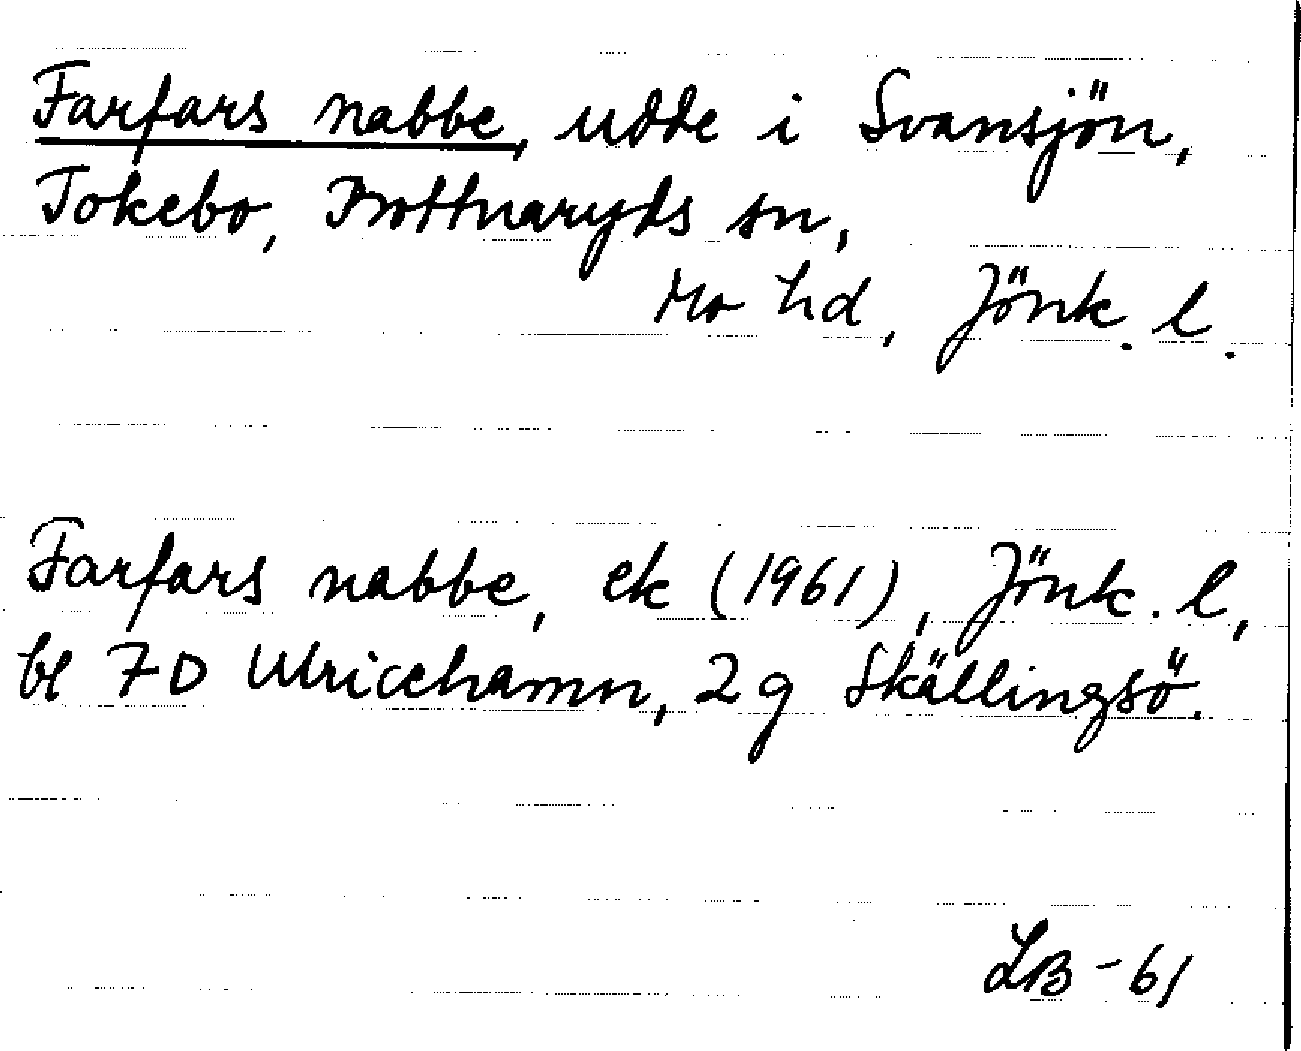 Farfars nabbe, udde i Svansjön,
Tokebo, Bottnaryds sn,
Mo hd, Jönk. l.
Farfars nabbe, ek (1961), Jönk. l,
bl 7D Ulricehamn, 2g Skällingsö.
LB-61